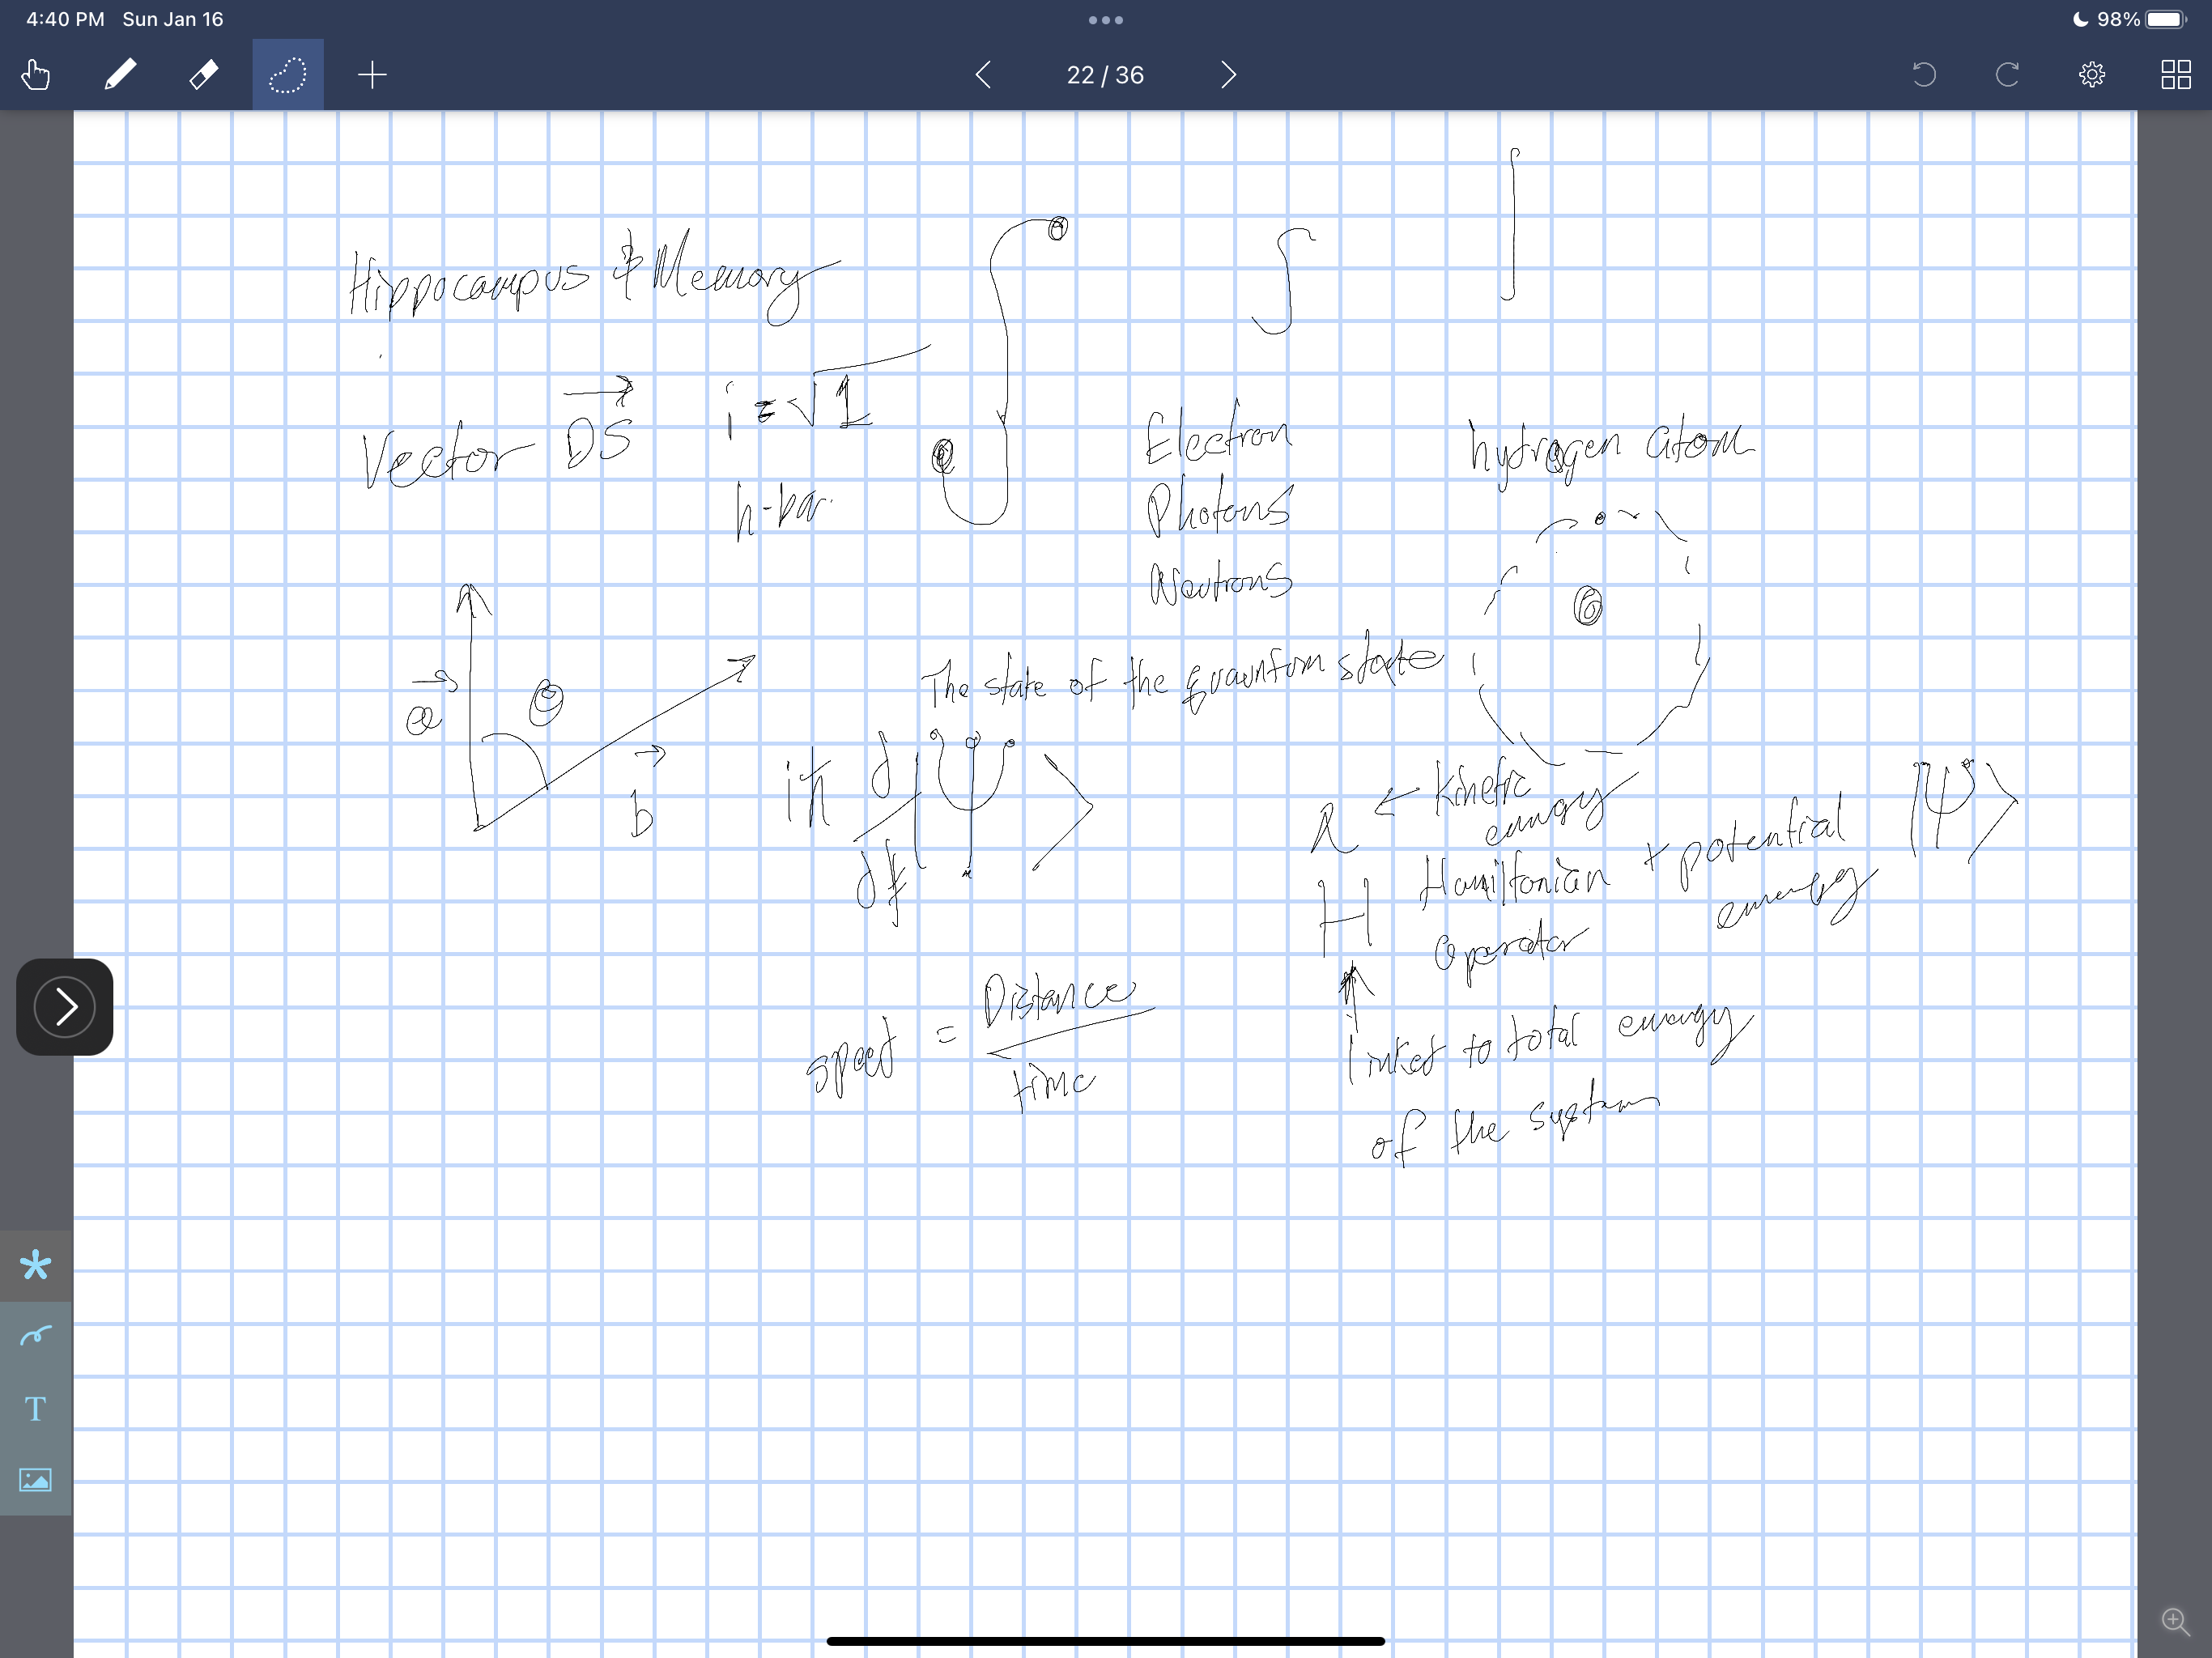 4:40 PM Sun Jan 16
98%
22 / 36
Hippocampus & Memory
Vector DS
i = √1
h-bar
Electron
Photons
Neutrons
hydrogen atom
a
θ
b
The state of the quantum state
iħ d/dt |Ψ⟩
← Kinetic
energy
H Hamiltonian + potential
energy
operator
|Ψ⟩
speed = Distance
time
linked to total energy
of the system
T